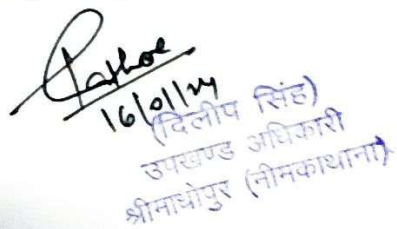 Rathore
16/01/24
(दिलीप सिंह)
उपखण्ड अधिकारी
श्रीमाधोपुर (नीमकाथाना)